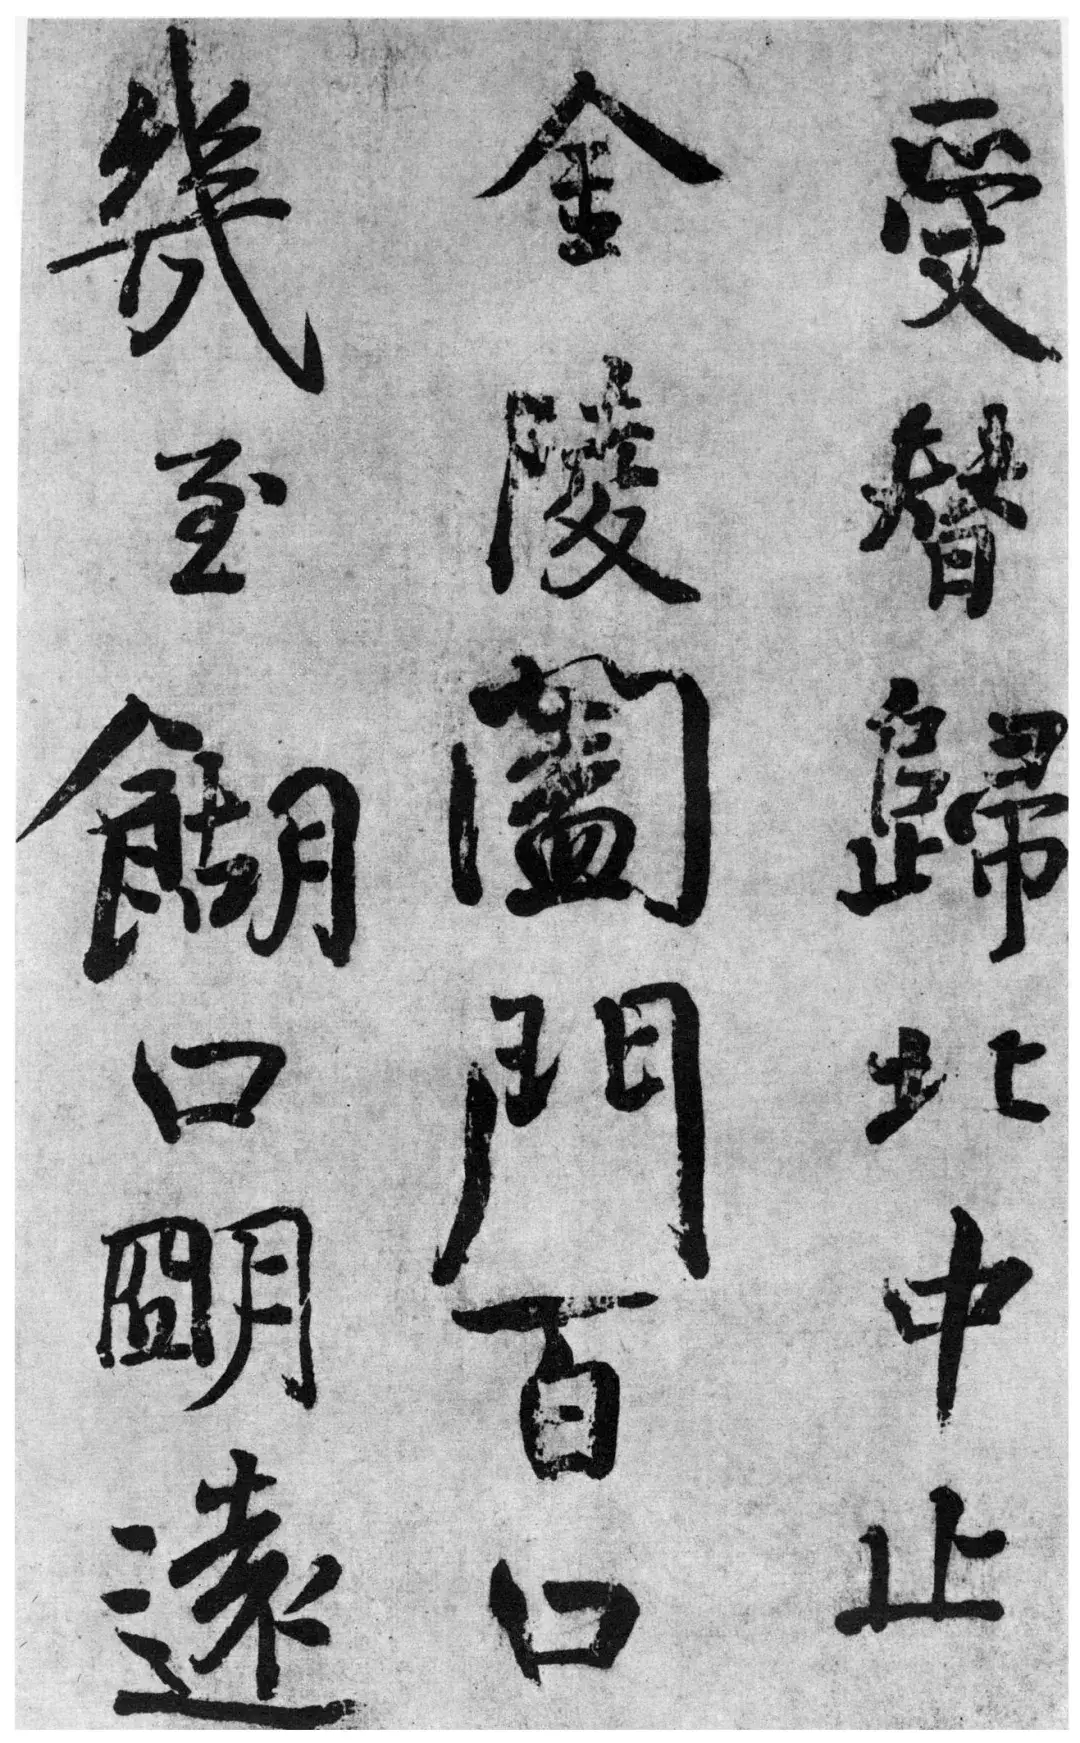 受替歸北中止
金陵闔門百口
幾至餬口朙遠